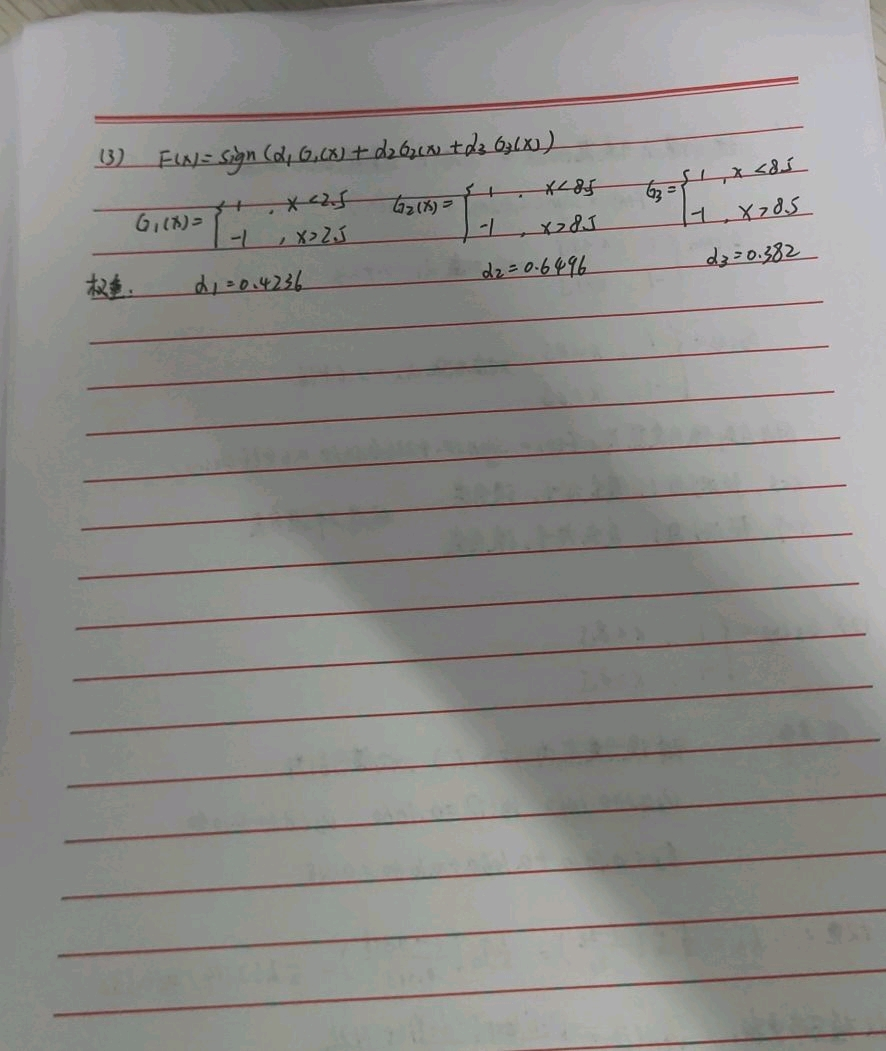 (3) F(x)=sign(α₁G₁(x)+α₂G₂(x)+α₃G₃(x))
G₁(x)={1, x<2.5 G₂(x)={1, x<8.5 G₃={1, x<8.5
-1, x>2.5 -1, x>8.5 -1, x>8.5
权重: α₁=0.4236 α₂=0.6496 α₃=0.382